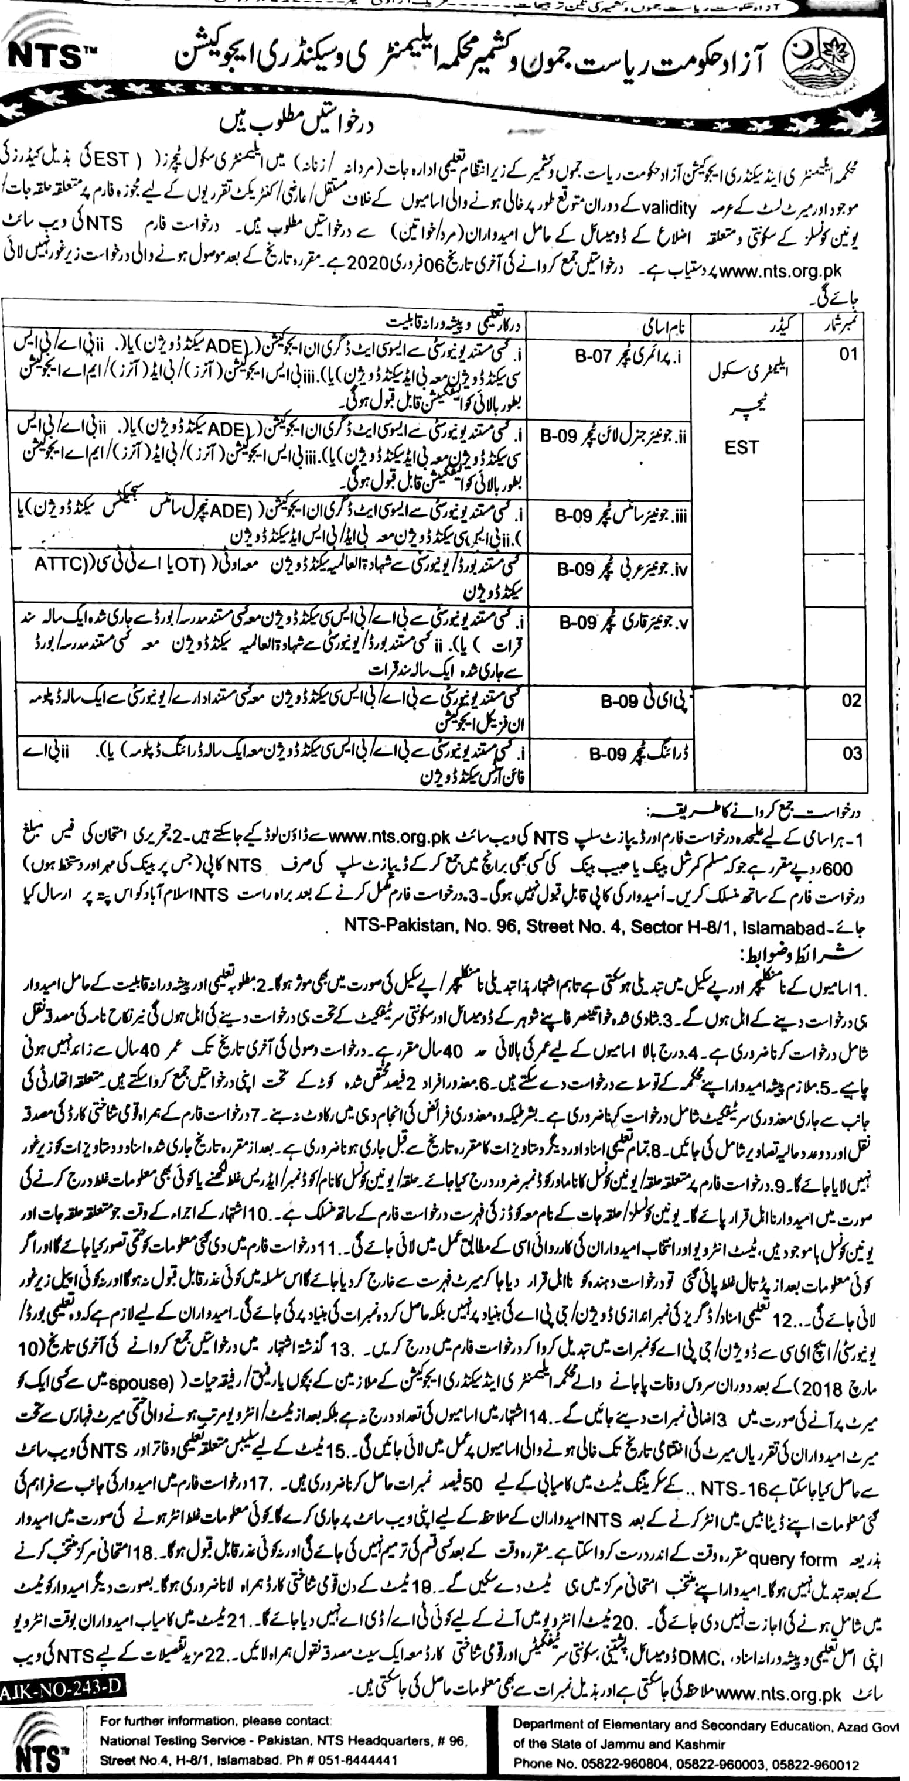 NTS™
آزاد حکومت ریاست جموں و کشمیر محکمہ ایلیمنٹری و سیکنڈری ایجوکیشن
درخواستیں مطلوب ہیں
محکمہ ایلیمنٹری اینڈ سیکنڈری ایجوکیشن آزاد حکومت ریاست جموں و کشمیر کے زیر انتظام تعلیمی ادارہ جات (مردانہ / زنانہ) میں ایلیمنٹری سکول ٹیچرز (EST) کی بذیل کیڈرز کی
موجود اور میرٹ لسٹ کے عرصہ validity کے دوران متوقع طور پر خالی ہونے والی اسامیوں کے خلاف مستقل/عارضی/کنٹریکٹ تقرریوں کے لیے مجوزہ فارم پر متعلقہ حلقہ جات/
یونین کونسلز کے سکونتی و متعلقہ اضلاع کے ڈومیسائل کے حامل امیدواران (مرد/خواتین) سے درخواستیں مطلوب ہیں۔ درخواست فارم NTS کی ویب سائٹ
www.nts.org.pk پر دستیاب ہے۔ درخواستیں جمع کروانے کی آخری تاریخ 06 فروری 2020 ہے۔ مقررہ تاریخ کے بعد موصول ہونے والی درخواست زیر غور نہیں لائی
جائے گی۔
نمبر شمار کیڈر نام اسامی درکار تعلیمی و پیشہ ورانہ قابلیت
01 ایلیمنٹری سکول ٹیچر EST
i. پرائمری ٹیچر B-07
i. کسی مستند یونیورسٹی سے ایسوسی ایٹ ڈگری ان ایجوکیشن (ADE سیکنڈ ڈویژن) یا (ii. بی اے/بی ایس
سی سیکنڈ ڈویژن معہ بی ایڈ سیکنڈ ڈویژن) یا (iii. بی ایس ایجوکیشن (آنرز)/بی ایڈ (آنرز)/ایم اے ایجوکیشن
بطور ہائی کوالیفکیشن قابل قبول ہوگی۔
ii. جونیئر جنرل لائن ٹیچر B-09
i. کسی مستند یونیورسٹی سے ایسوسی ایٹ ڈگری ان ایجوکیشن (ADE سیکنڈ ڈویژن) یا (ii. بی اے/بی ایس
سی سیکنڈ ڈویژن معہ بی ایڈ سیکنڈ ڈویژن) یا (iii. بی ایس ایجوکیشن (آنرز)/بی ایڈ (آنرز)/ایم اے ایجوکیشن
بطور ہائی کوالیفکیشن قابل قبول ہوگی۔
iii. جونیئر سائنس ٹیچر B-09
i. کسی مستند یونیورسٹی سے ایسوسی ایٹ ڈگری ان ایجوکیشن (ADE نیچرل سائنس سبجیکٹس سیکنڈ ڈویژن) یا
(ii. بی ایس سی سیکنڈ ڈویژن معہ بی ایڈ/بی ایس ایڈ سیکنڈ ڈویژن
iv. جونیئر عربی ٹیچر B-09
کسی مستند بورڈ/یونیورسٹی سے شہادۃ العالمیہ سیکنڈ ڈویژن معہ او ٹی (OT) یا اے ٹی ٹی سی (ATTC)
سیکنڈ ڈویژن
v. جونیئر قاری ٹیچر B-09
i. کسی مستند یونیورسٹی سے بی اے/بی ایس سی سیکنڈ ڈویژن معہ کسی مستند مدرسہ/بورڈ سے جاری شدہ ایک سالہ سند
قرات (یا) ii. کسی مستند بورڈ/یونیورسٹی سے شہادۃ العالمیہ سیکنڈ ڈویژن معہ کسی مستند مدرسہ/بورڈ
سے جاری شدہ ایک سالہ سند قرات
02 پی ای ٹی B-09
کسی مستند یونیورسٹی سے بی اے/بی ایس سی سیکنڈ ڈویژن معہ کسی مستند ادارے/یونیورسٹی سے ایک سالہ ڈپلومہ
ان فزیکل ایجوکیشن
03 ڈرائنگ ٹیچر B-09
i. کسی مستند یونیورسٹی سے بی اے/بی ایس سی سیکنڈ ڈویژن معہ ایک سالہ ڈرائنگ ڈپلومہ (یا) ii. بی اے
فائن آرٹس سیکنڈ ڈویژن
درخواست جمع کروانے کا طریقہ:
1- ہر اسامی کے لیے علیحدہ درخواست فارم اور ڈیپازٹ سلپ NTS کی ویب سائٹ www.nts.org.pk سے ڈاؤن لوڈ کیے جا سکتے ہیں۔ 2- تحریری امتحان کی فیس مبلغ
600 روپے مقرر ہے جو کہ مسلم کمرشل بینک یا حبیب بینک کی کسی بھی برانچ میں جمع کر کے ڈیپازٹ سلپ کی صرف NTS کاپی (جس پر بینک کی مہر اور دستخط ہوں)
درخواست فارم کے ساتھ منسلک کریں۔ امیدوار کی کاپی قابل قبول نہیں ہوگی۔ 3- درخواست فارم مکمل کرنے کے بعد براہ راست NTS اسلام آباد کو اس پتہ پر ارسال کیا
جائے۔ NTS-Pakistan, No. 96, Street No. 4, Sector H-8/1, Islamabad.
شرائط و ضوابط:
1. اسامیوں کے نام نکلیچر اور پے سکیل میں تبدیلی ہو سکتی ہے تاہم اشتہار ہذا تبدیلی نامنکلیچر/پے سکیل کی صورت میں بھی موثر ہوگا۔ 2. مطلوبہ تعلیمی اور پیشہ ورانہ قابلیت کے حامل امیدوار
ہی درخواست دینے کے اہل ہوں گے۔ 3. شادی شدہ خواتین صرف اپنے شوہر کے ڈومیسائل اور سکونتی سرٹیفکیٹ کے تحت ہی درخواست دینے کی اہل ہوں گی نیز نکاح نامہ کی مصدقہ نقل
شامل درخواست کرنا ضروری ہے۔ 4. درج بالا اسامیوں کے لیے عمر کی بالائی حد 40 سال مقرر ہے۔ درخواست وصولی کی آخری تاریخ تک عمر 40 سال سے زائد نہیں ہونی
چاہیے۔ 5. ملازم پیشہ امیدوار اپنے محکمہ کے توسط سے درخواست دے سکتے ہیں۔ 6. معذور افراد 2 فیصد مختص شدہ کوٹہ کے تحت اپنی درخواستیں جمع کروا سکتے ہیں۔ متعلقہ اتھارٹی کی
جانب سے جاری معذوری سرٹیفکیٹ شامل درخواست کرنا ضروری ہے۔ بشرطیکہ وہ معذوری فرائض کی انجام دہی میں رکاوٹ نہ بنے۔ 7. درخواست فارم کے ہمراہ قومی شناختی کارڈ کی مصدقہ
نقل اور دو عدد حالیہ تصاویر شامل کی جائیں۔ 8. تمام تعلیمی اسناد اور دیگر دستاویزات کا مقررہ تاریخ سے قبل جاری ہونا ضروری ہے۔ بعد از مقررہ تاریخ جاری شدہ اسناد و دستاویزات کو زیر غور
نہیں لایا جائے گا۔ 9. درخواست فارم پر متعلقہ حلقہ/یونین کونسل کا نام اور کوڈ نمبر ضرور درج کیا جائے۔ حلقہ/یونین کونسل کا نام/کوڈ نمبر/ایڈریس غلط لکھنے یا کوئی بھی معلومات غلط درج کرنے کی
صورت میں امیدوار نااہل قرار پائے گا۔ یونین کونسلز/حلقہ جات کے نام معہ کوڈز کی فہرست درخواست فارم کے ساتھ منسلک ہے۔ 10. اشتہار کے اجراء کے وقت جو متعلقہ حلقہ جات اور
یونین کونسل ہا موجود ہیں، ٹیسٹ انٹرویو اور انتخاب امیدواران کی کارروائی اسی کے مطابق عمل میں لائی جائے گی۔ 11. درخواست فارم میں دی گئی معلومات کو حتمی تصور کیا جائے گا اور اگر
کوئی معلومات بعد از پڑتال غلط پائی گئی تو درخواست دہندہ کو نااہل قرار دیا جا کر میرٹ فہرست سے خارج کر دیا جائے گا اس سلسلہ میں کوئی عذر قابل قبول نہ ہوگا اور نہ کوئی اپیل زیر غور
لائی جائے گی۔ 12. تعلیمی اسناد/ڈگریز کی نمبر اندازی ڈویژن/جی پی اے کی بنیاد پر نہیں بلکہ حاصل کردہ نمبرات کی بنیاد پر کی جائے گی۔ امیدواران کے لیے لازم ہے کہ وہ تعلیمی بورڈ/
یونیورسٹی/ایچ ای سی سے ڈویژن/جی پی اے کو نمبرات میں تبدیل کروا کر درخواست فارم میں درج کریں۔ 13. گذشتہ اشتہار میں درخواستیں جمع کروانے کی آخری تاریخ (10
مارچ 2018) کے بعد دوران سروس وفات پا جانے والے محکمہ ایلیمنٹری اینڈ سیکنڈری ایجوکیشن کے ملازمین کے بچوں یا رفیق/رفیقہ حیات (spouse) میں سے کسی ایک کو
میرٹ پر آنے کی صورت میں 3 اضافی نمبرات دیئے جائیں گے۔ 14. اشتہار میں اسامیوں کی تعداد درج نہ ہے بلکہ بعد از ٹیسٹ/انٹرویو مرتب ہونے والی حتمی میرٹ فہارس کے تحت
میرٹ امیدواران کی تقرریاں میرٹ کی اختتامی تاریخ تک خالی ہونے والی اسامیوں پر عمل میں لائی جائیں گی۔ 15. ٹیسٹ کے لیے سلیبس متعلقہ تعلیمی دفاتر اور NTS کی ویب سائٹ
سے حاصل کیا جا سکتا ہے 16۔ NTS کے سکریننگ ٹیسٹ میں کامیابی کے لیے 50 فیصد نمبرات حاصل کرنا ضروری ہیں۔ 17. درخواست فارم میں امیدوار کی جانب سے فراہم کی
گئی معلومات اپنے ڈیٹا بیس میں انٹر کرنے کے بعد NTS امیدواران کے ملاحظہ کے لیے اپنی ویب سائٹ پر جاری کرے گا۔ کوئی معلومات غلط انٹر ہونے کی صورت میں امیدوار
بذریعہ query form مقررہ وقت کے اندر درست کروا سکتا ہے۔ مقررہ وقت کے بعد کسی قسم کی ترمیم نہیں کی جائے گی اور نہ کوئی عذر قابل قبول ہوگا۔ 18. امتحانی مرکز منتخب کرنے
کے بعد تبدیل نہیں ہوگا۔ امیدوار اپنے منتخب امتحانی مرکز میں ہی ٹیسٹ دے سکیں گے۔ 19. ٹیسٹ کے دن قومی شناختی کارڈ ہمراہ لانا ضروری ہوگا۔ بصورت دیگر امیدوار کو ٹیسٹ
میں شامل ہونے کی اجازت نہیں دی جائے گی۔ 20. ٹیسٹ/انٹرویو میں آنے کے لیے کوئی ٹی اے/ڈی اے نہیں دیا جائے گا۔ 21. ٹیسٹ میں کامیاب امیدواران بوقت انٹرویو
اپنی اصل تعلیمی و پیشہ ورانہ اسناد، DMC، ڈومیسائل، پشتینی، سکونتی سرٹیفکیٹس اور قومی شناختی کارڈ معہ ایک سیٹ مصدقہ نقول ہمراہ لائیں۔ 22. مزید تفصیلات کے لیے NTS کی ویب
سائٹ www.nts.org.pk ملاحظہ کی جا سکتی ہے اور بذیل نمبرات سے بھی معلومات حاصل کی جا سکتی ہیں۔
AJK-NO-243-D
NTS™
For further information, please contact:
National Testing Service - Pakistan, NTS Headquarters, # 96,
Street No.4, H-8/1, Islamabad. Ph # 051-8444441
Department of Elementary and Secondary Education, Azad Govt
of the State of Jammu and Kashmir
Phone No. 05822-960804, 05822-960003, 05822-960012